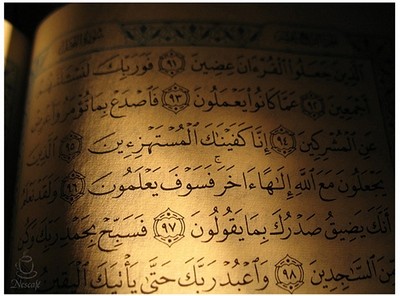 الَّذِينَ جَعَلُوا الْقُرْءَانَ عِضِينَ ﴿٩١﴾ فَوَرَبِّكَ لَنَسْـَٔلَنَّهُمْ
أَجْمَعِينَ ﴿٩٢﴾ عَمَّا كَانُوا يَعْمَلُونَ ﴿٩٣﴾ فَاصْدَعْ بِمَا تُؤْمَرُ وَأَعْرِضْ
عَنِ الْمُشْرِكِينَ ﴿٩٤﴾ إِنَّا كَفَيْنَاكَ الْمُسْتَهْزِءِينَ ﴿٩٥﴾ الَّذِينَ
يَجْعَلُونَ مَعَ اللَّهِ إِلَـٰهًا ءَاخَرَ ۚ فَسَوْفَ يَعْلَمُونَ ﴿٩٦﴾ وَلَقَدْ نَعْلَمُ
أَنَّكَ يَضِيقُ صَدْرُكَ بِمَا يَقُولُونَ ﴿٩٧﴾ فَسَبِّحْ بِحَمْدِ رَبِّكَ وَكُن
مِّنَ السَّـٰجِدِينَ ﴿٩٨﴾ وَاعْبُدْ رَبَّكَ حَتَّىٰ يَأْتِيَكَ الْيَقِينُ
Nescafé